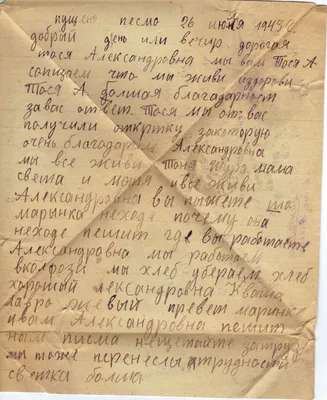 пущено песмо 26 июня 1943 г.
добрый день или вечер дорогая
тося Александровна мы вам Тося А
сопщаем что мы живи издорови
Тося А. долшая благадарност
завас ответ. Тося мы от вас
получили открткy закоторую
очень благадарим Александровна
мы все живи Таня Шура мама
света и моня ивсе живи
Александровна вы пишете што
марынка неходе почему она
неходе пешит где вы работаете
Александровна мы работаем
вколфози мы хлеб убераем хлеб
хороший лександровна Кваша
лавро живый превет маринке
ивам Александровна пешит
нам писма нещетайте затруд
мы тоже перенеслы трудности
светка болша